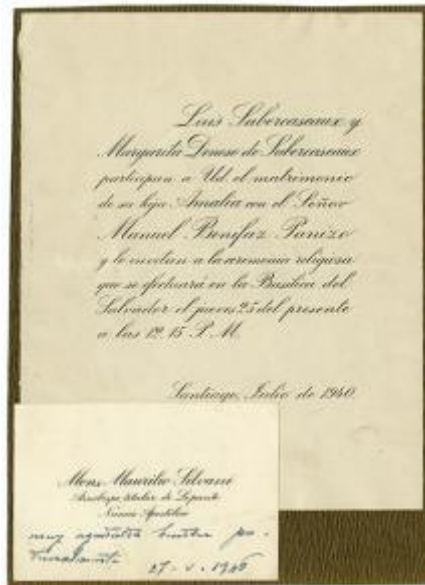 Luis Subercaseaux y
Margarita Donoso de Subercaseaux
participan a Ud. el matrimonio
de su hija Amalia con el Señor
Manuel Bonifaz Panizo
y le invitan a la ceremonia religiosa
que se efectuará en la Basílica del
Salvador el jueves 25 del presente
a las 12.15 P.M.
Santiago, Julio de 1940.
Mons. Maurilio Silvani
Arzobispo titular de Lepanto
Nuncio Apostólico
muy
27 - V - 1946